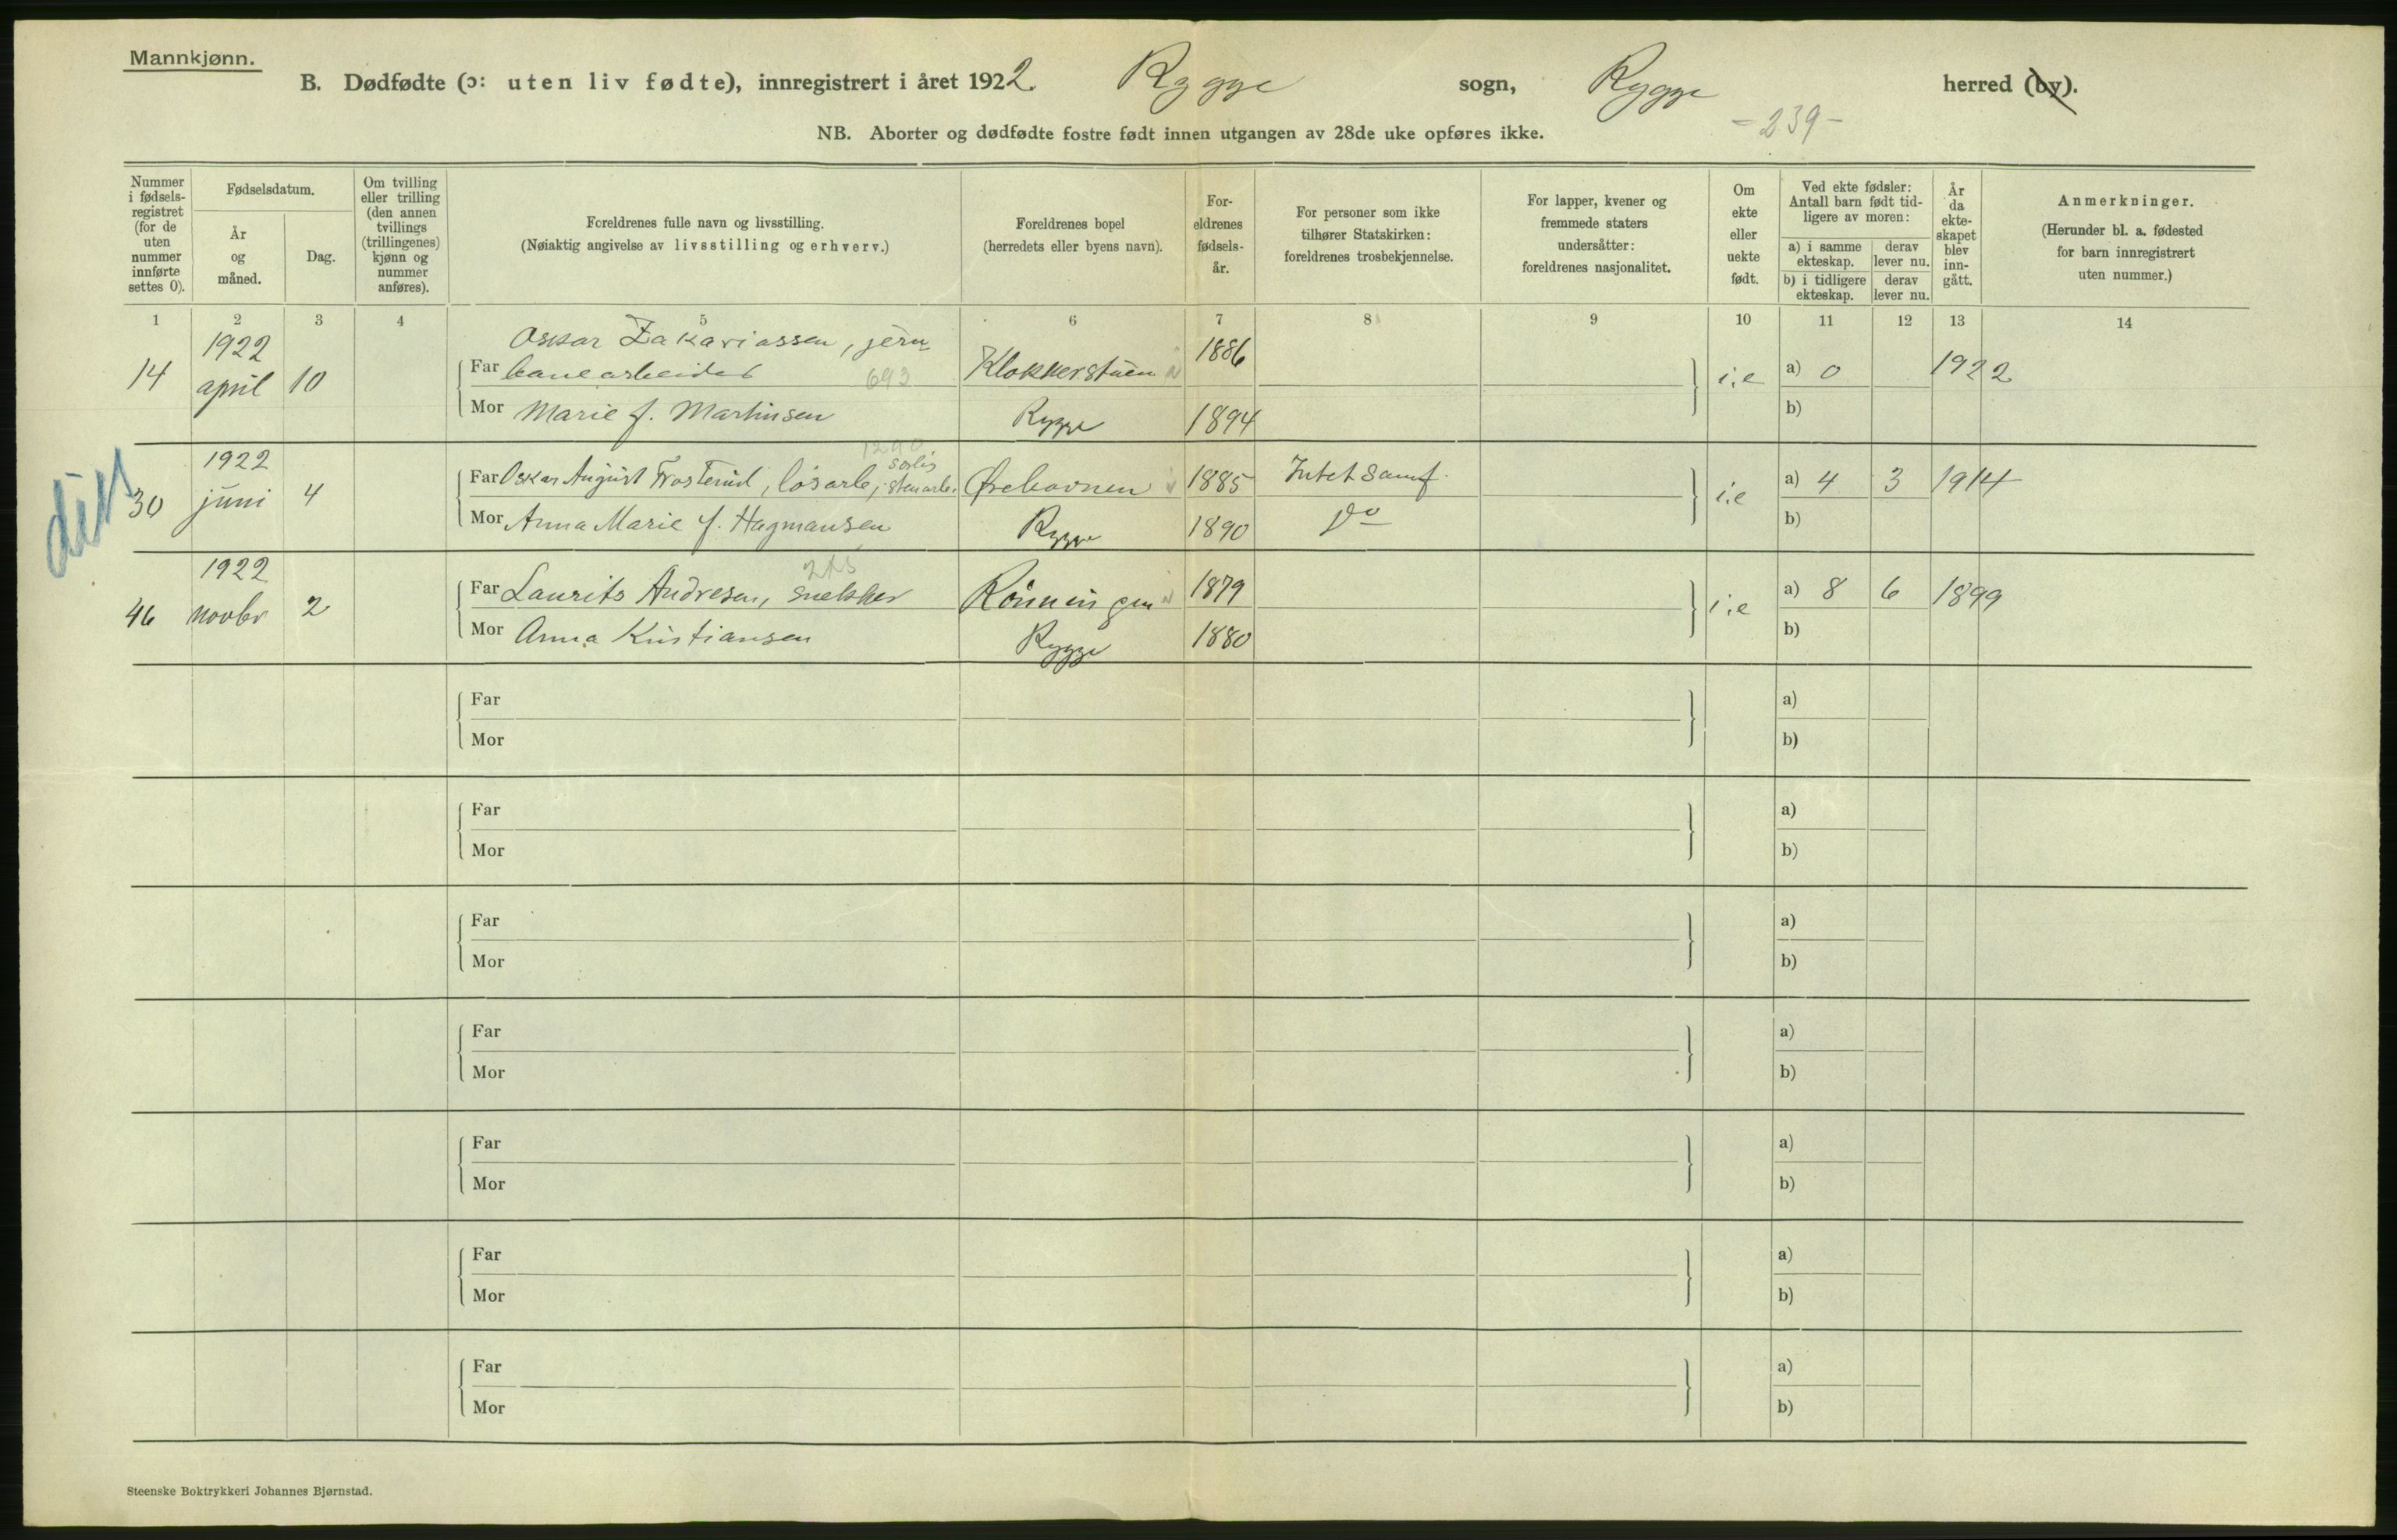 Mannkjønn.
B. Dødfødte (ɔ: uten liv fødte), innregistrert i året 1922. Rygge sogn, Rygge herred (by).
-239-
NB. Aborter og dødfødte fostre født innen utgangen av 28de uke opføres ikke.
Nummer i fødsels-registret (for de uten nummer innførte settes 0).
Fødselsdatum.
År og måned.
Dag.
Om tvilling eller trilling (den annen tvillings (trillingenes) kjønn og nummer anføres).
Foreldrenes fulle navn og livsstilling.
(Nøiaktig angivelse av livsstilling og erhverv.)
Foreldrenes bopel
(herredets eller byens navn).
For-eldrenes fødsels-år.
For personer som ikke tilhører Statskirken: foreldrenes trosbekjennelse.
For lapper, kvener og fremmede staters undersåtter: foreldrenes nasjonalitet.
Om ekte eller uekte født.
Ved ekte fødsler: Antall barn født tid-ligere av moren:
a) i samme ekteskap.
derav lever nu.
b) i tidligere ekteskap.
derav lever nu.
År da ekte-skapet blev inn-gått.
Anmerkninger.
(Herunder bl. a. fødested for barn innregistrert uten nummer.)
1 2 3 4 5 6 7 8 9 10 11 12 13 14
1922 Oskar Zakariassen, jern
14 april 10 Far banearbeider 693 Klokkerstuen 1886 i.e a) 0 1922
Mor Marie f. Martinsen Rygge 1894 b)
diss
1922 1290
30 juni 4 Far Oskar August Frosterud, løsarb, stenarb. Ørehavnen 1885 Intet samf. i.e a) 4 3 1914
Mor Anna Marie f. Hagmansen Rygge 1890 Do b)
1922
46 novbr 2 Far Laurits Andresen, snekker Rönningen 1879 i.e a) 8 6 1899
Mor Anna Kristiansen Rygge 1880 b)
Far a)
Mor b)
Far a)
Mor b)
Far a)
Mor b)
Far a)
Mor b)
Far a)
Mor b)
Far a)
Mor b)
Far a)
Mor b)
Steenske Boktrykkeri Johannes Bjørnstad.